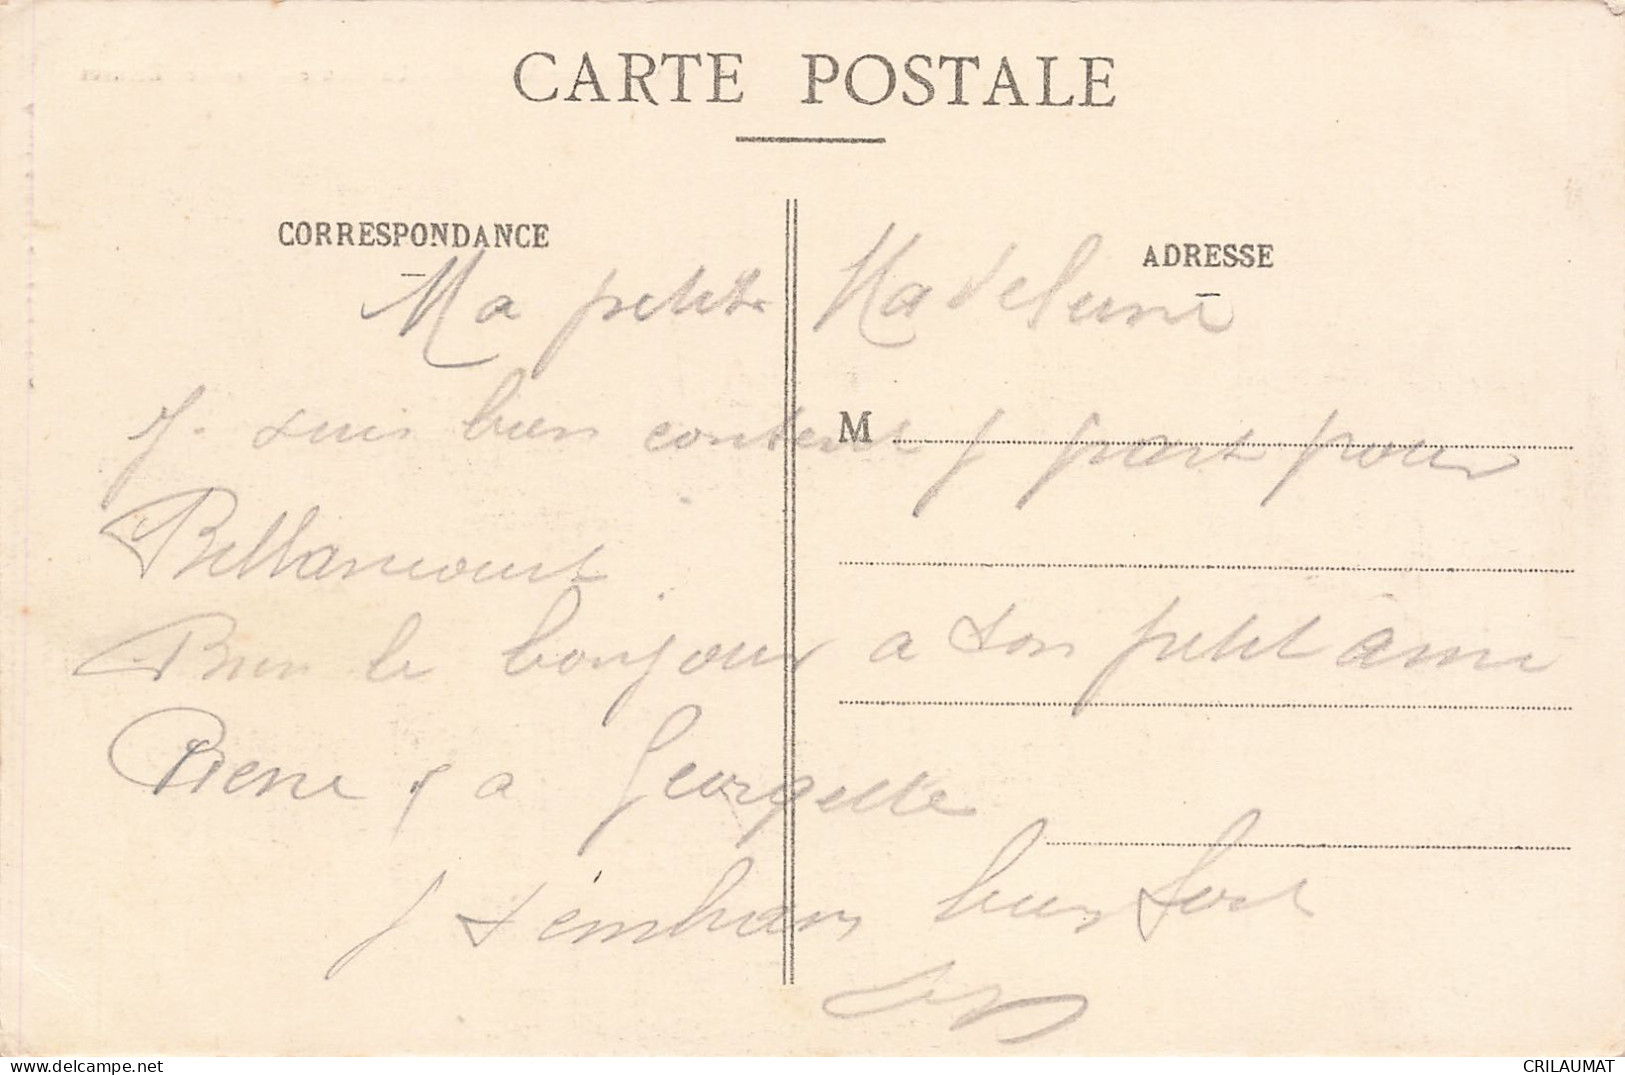 CARTE POSTALE
CORRESPONDANCE
ADRESSE
Ma petite Madeleine
Je suis bien content je part pour
M
Billancourt
Bien le bonjour a ton petit ami
Pierre et a Georgette
Je t'embrass bien fort
www.delcampe.net
CRILAUMAT